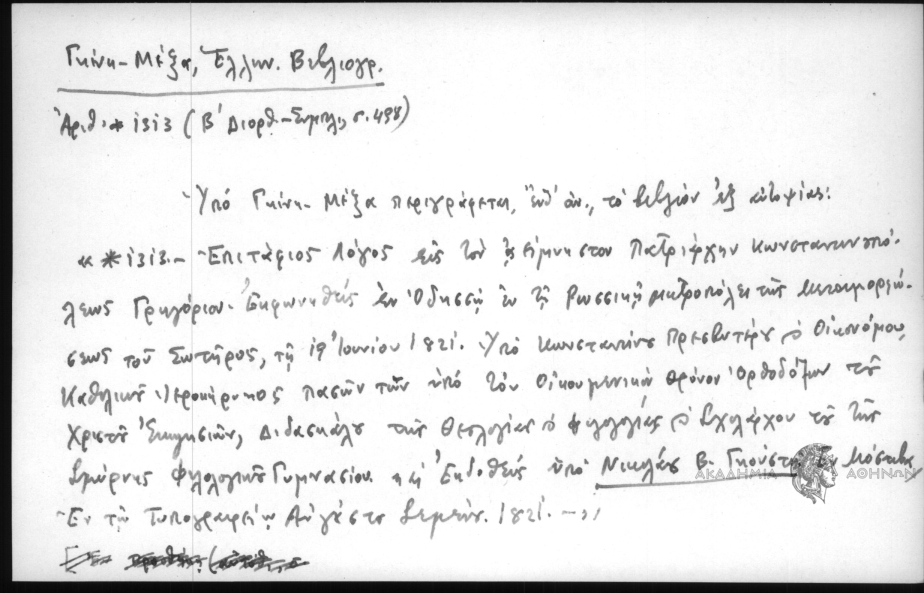 Γκίνη-Μέξα, Ἑλλην. Βιβλιογρ.
Ἀριθ. * 1313 (Β' Διορθ.-Συμπλ., σ. 498)
Ὑπό Γκίνη-Μέξα περιγράφεται, ἔνθ' ἀν., τό βιβλίον ἐξ αὐτοψίας:
« *1313.- Ἐπιτάφιος Λόγος εἰς τόν ἀείμνηστον Πατριάρχην Κωνσταντινουπό-
λεως Γρηγόριον. Ἐκφωνηθείς ἐν Ὀδησσῷ ἐν τῇ Ρωσσικῇ Μητροπόλει τῆς Μεταμορφώ-
σεως τοῦ Σωτῆρος, τῇ 19 Ἰουνίου 1821. Ὑπό Κωνσταντίνου Πρεσβυτέρου ὁ Οἰκονόμου,
Καθολικοῦ Ἱεροκήρυκος πασῶν τῶν ὑπό τόν Οἰκουμενικόν θρόνον Ὀρθοδόξων τοῦ
Χριστοῦ Ἐκκλησιῶν, Διδασκάλου τῆς Θεολογίας ὁ φιλολογίας ὁ Σχολάρχου τοῦ τῆς
Σμύρνης Φιλολογικοῦ Γυμνασίου. Ἐκδοθείς ὑπό Νικολάου Β. Γκούστη ἐν Μόσχᾳ
Ἐν τῇ Τυπογραφίᾳ Αὐγούστου Σεμέν. 1821. - »
ΑΚΑΔΗΜΙΑ ΑΘΗΝΩΝ